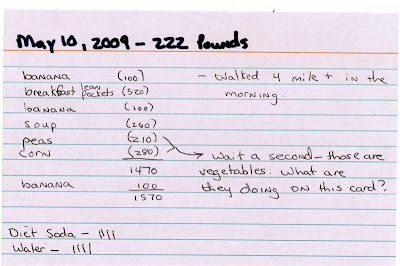 May 10, 2009 - 222 Pounds
banana (100) - Walked 4 mile + in the
breakfast lean pockets (520) morning.
banana (100)
soup (260)
peas (210)
corn (280) wait a second - those are
1470 vegetables. What are
banana 100 they doing on this card?
1570
Diet Soda - ||||
Water - ||||